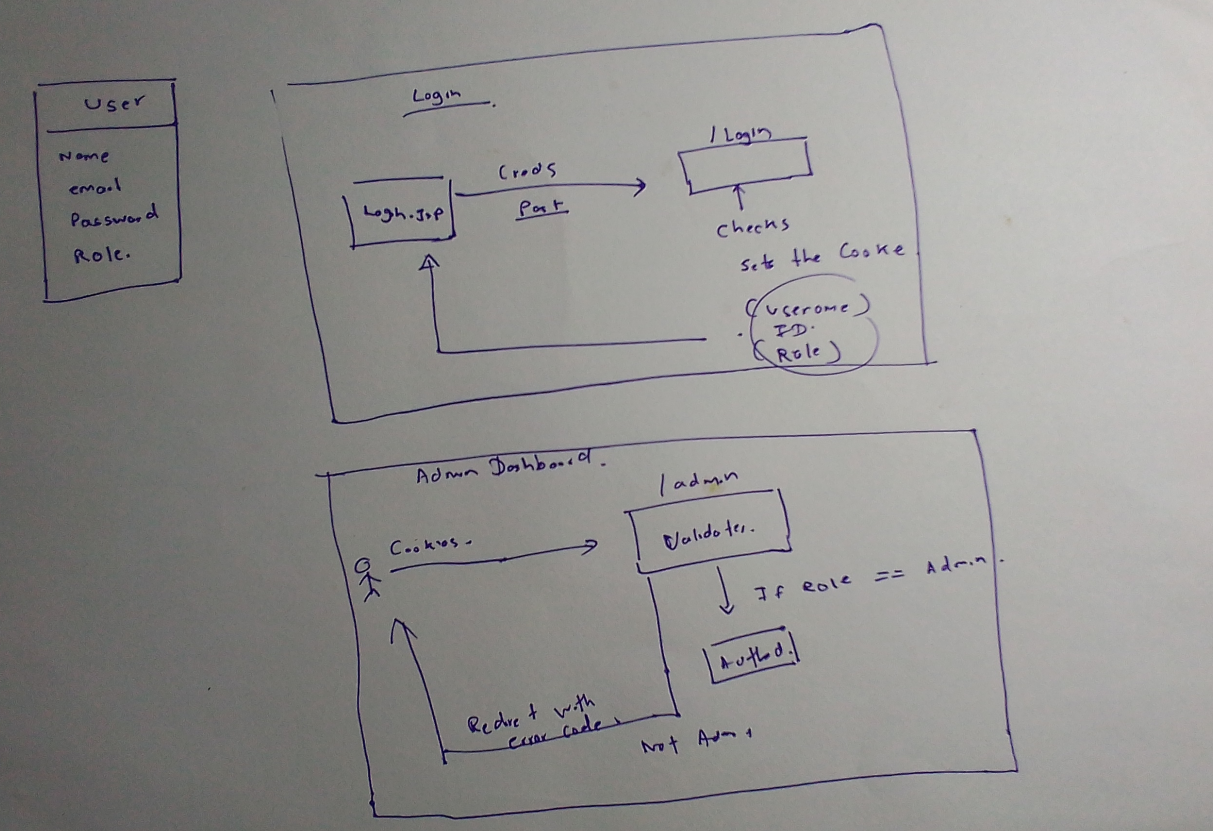 User
Name
email
Password
Role.
Login
/Login
Creds
Post
Login.Jsp
Checks
Sets the Cookie
(username)
ID.
(Role)
Admin Dashboard.
/admin
Cookies.
Validates.
If Role == Admin.
Authed.
Redirect with
error code.
Not Admin